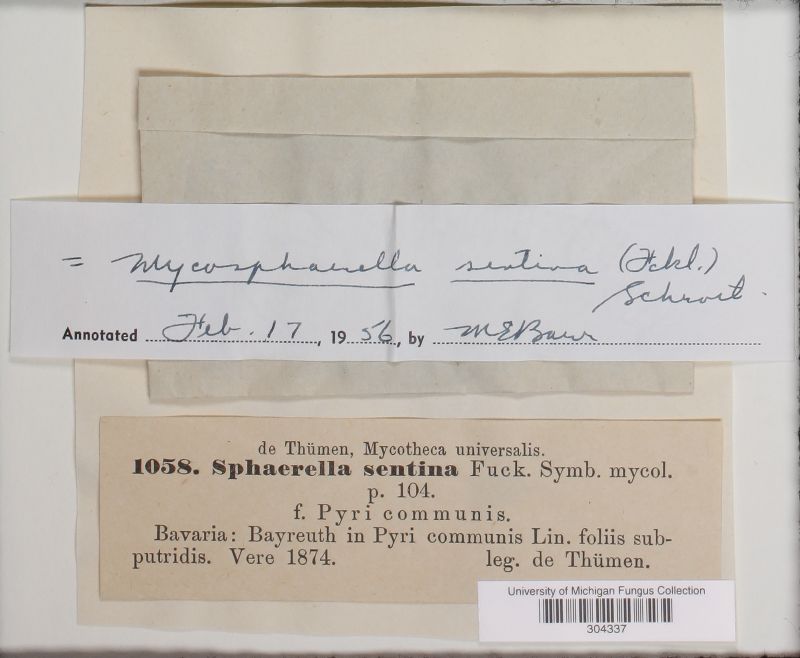 = Mycosphaerella sentina (Fckl.)
Schroet.
Annotated Feb. 17, 1956, by M E Barr
de Thümen, Mycotheca universalis.
1058. Sphaerella sentina Fuck. Symb. mycol.
p. 104.
f. Pyri communis.
Bavaria: Bayreuth in Pyri communis Lin. foliis sub-
putridis. Vere 1874. leg. de Thümen.
University of Michigan Fungus Collection
304337